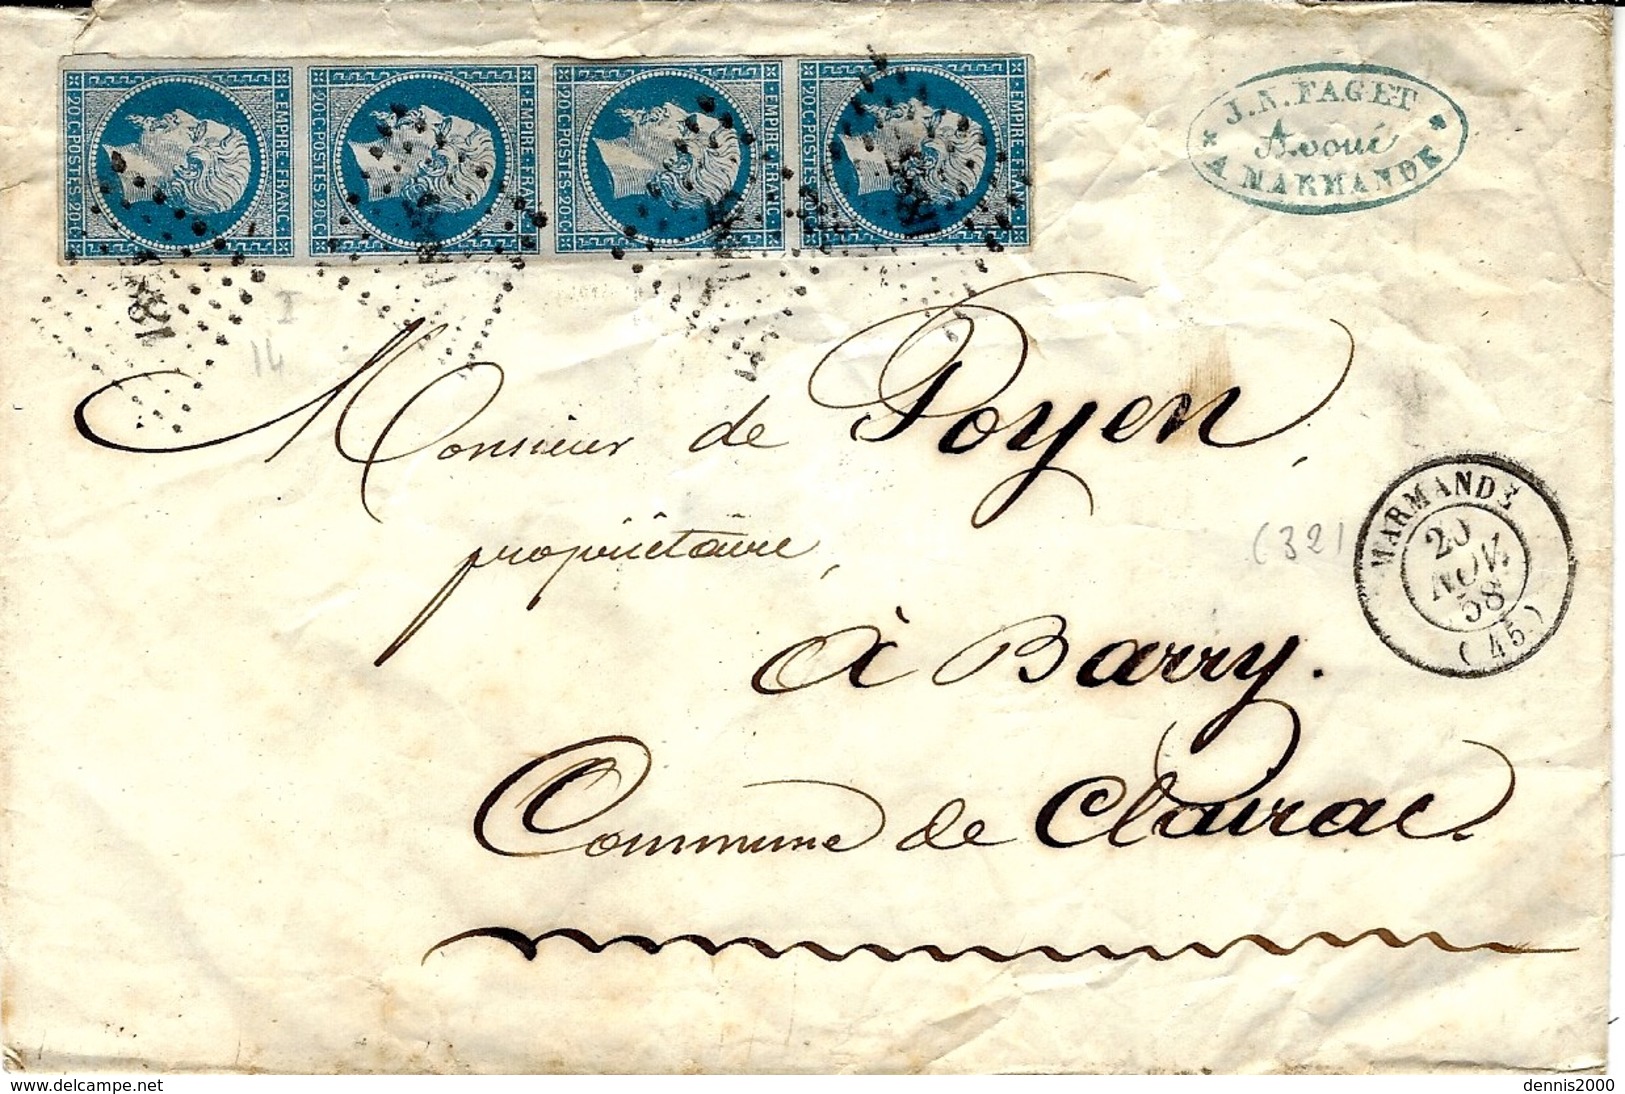 EMPIRE·FRANC· 20·C·POSTES·20·C
EMPIRE·FRANC· 20·C·POSTES·20·C
EMPIRE·FRANC· 20·C·POSTES·20·C
EMPIRE·FRANC· 20·C·POSTES·20·C
J.N. FAGET
Avoué
A MARMANDE
I
14
Monsieur de Poyen,
propriétaire,
à Barry.
Commune de Clairac.
(32)
MARMANDE
20
NOV.
58
(45)
delcampe.net
dennis2000